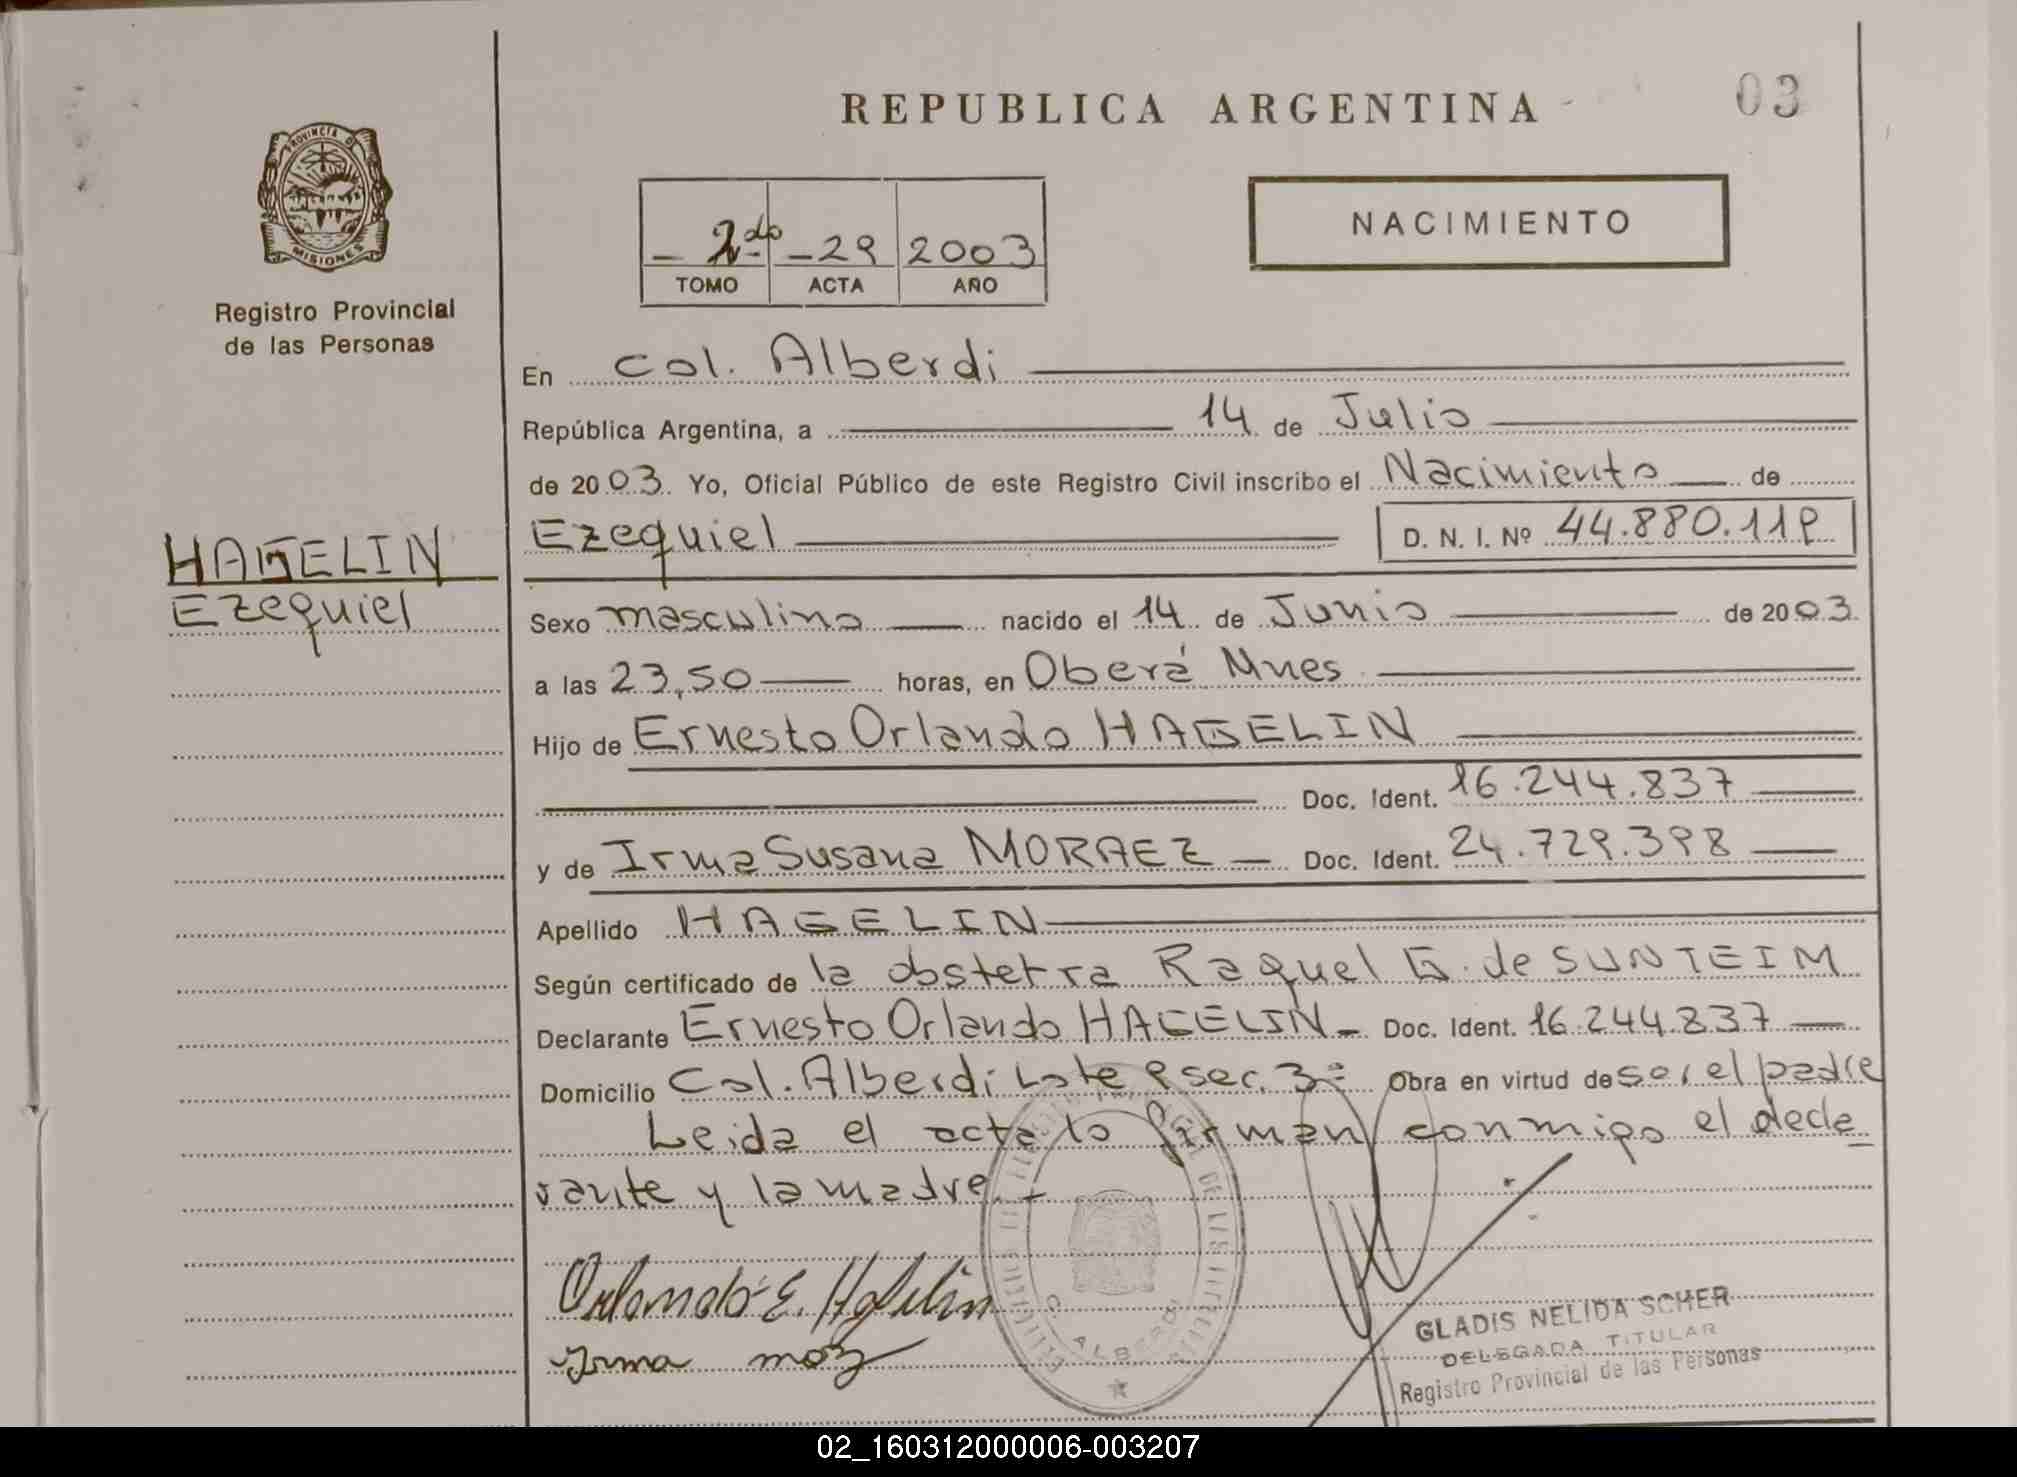 REPUBLICA ARGENTINA
03
PROVINCIA DE
MISIONES
Registro Provincial
de las Personas
2do - 29 2003
TOMO ACTA AÑO
NACIMIENTO
En Col. Alberdi
República Argentina, a 14 de Julio
de 2003. Yo, Oficial Público de este Registro Civil inscribo el Nacimiento de
HAGELIN
Ezequiel
Ezequiel D. N. I. Nº 44.880.119
Sexo masculino nacido el 14 de Junio de 2003
a las 23,50 horas, en Oberá Mnes
Hijo de Ernesto Orlando HAGELIN
Doc. Ident. 16.244.837
y de Irma Susana MORAEZ Doc. Ident. 24.729.398
Apellido HAGELIN
Según certificado de la obstetra Raquel G. de SUNTEIM
Declarante Ernesto Orlando HAGELIN Doc. Ident. 16.244.837
Domicilio Col. Alberdi Lote 9 sec. 3ª Obra en virtud de ser el padre
Leida el acta lo firman conmigo el decla
rante y la madre.
Orlando E. Hagelin
Irma
C. ALBERDI
GLADIS NELIDA SCHER
DELEGADA TITULAR
Registro Provincial de las Personas
02_160312000006-003207